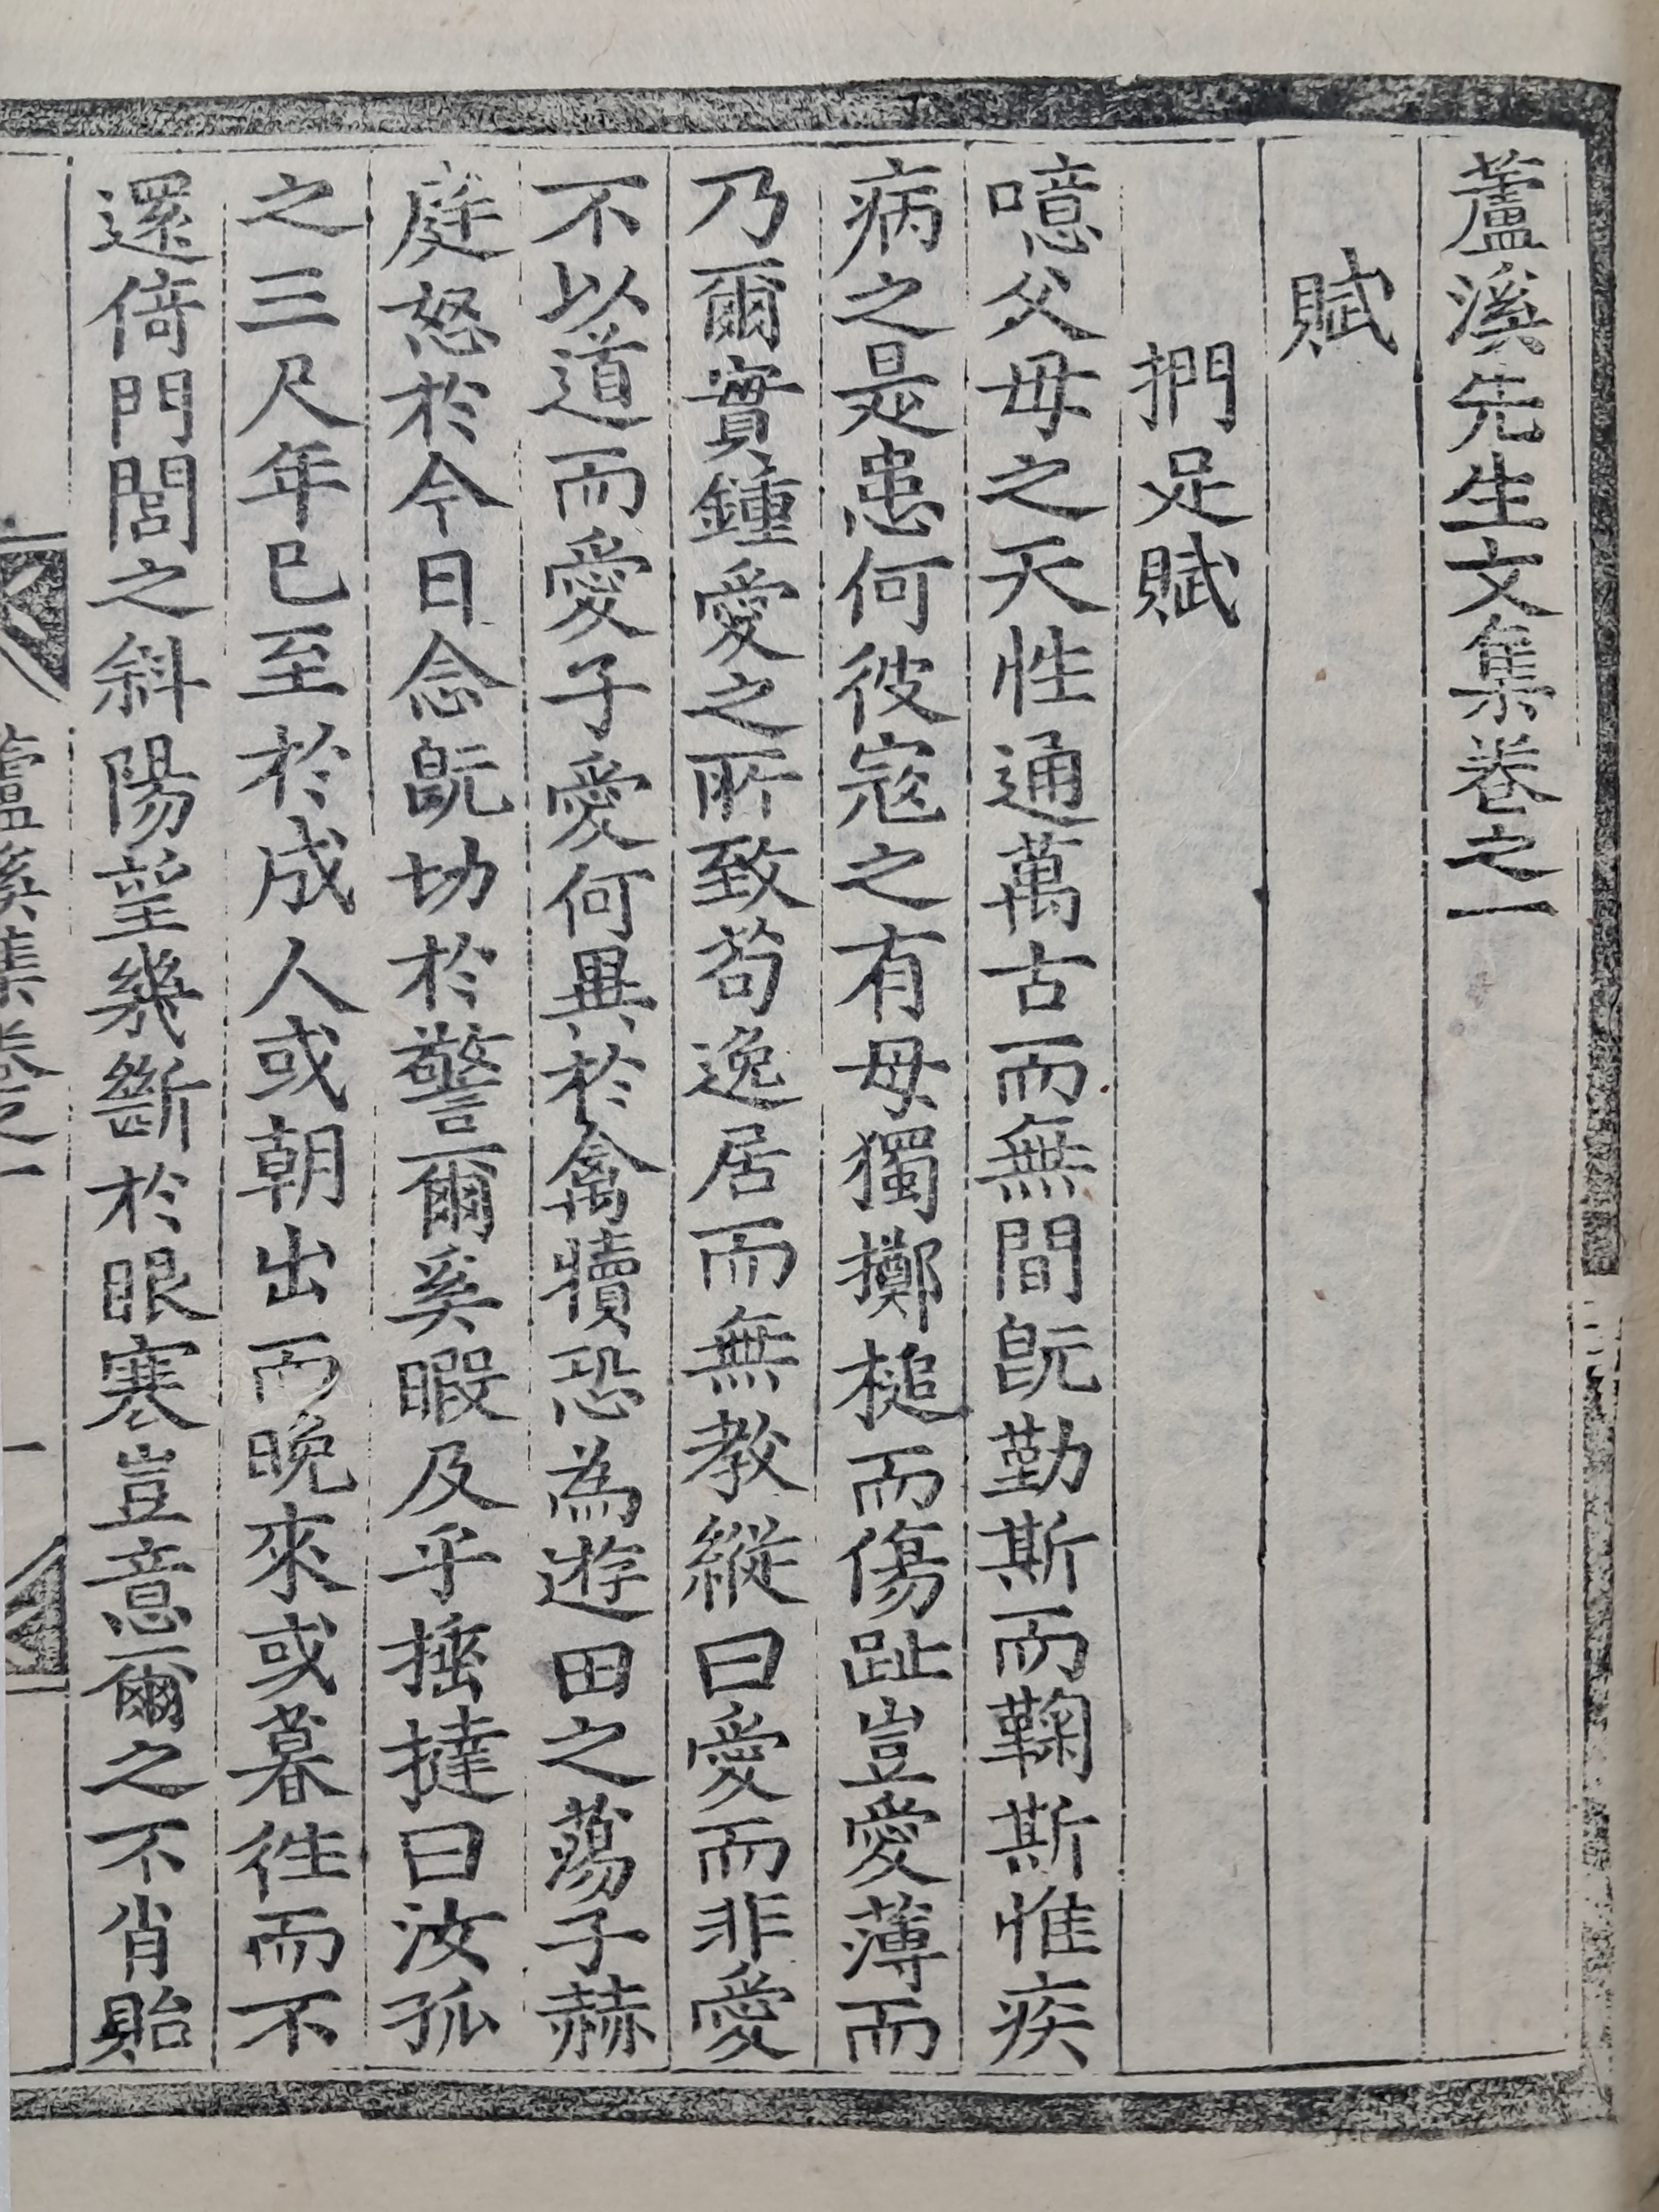 蘆溪先生文集卷之一
賦
捫足賦
噫父母之天性通萬古而無間旣勤斯而鞠斯惟疾
病之是患何彼寇之有母獨擲槌而傷趾豈愛薄而
乃爾實鍾愛之所致苟逸居而無教縱曰愛而非愛
不以道而愛子愛何異於禽犢恐為遊田之蕩子赫
庭怒於今日念旣切於警爾奚暇及乎捶撻曰汝孤
之三尺年已至於成人或朝出而晩來或暮徃而不
還倚門閭之斜陽望幾斷於眼寒豈意爾之不肖貽
蘆溪集卷之一
一